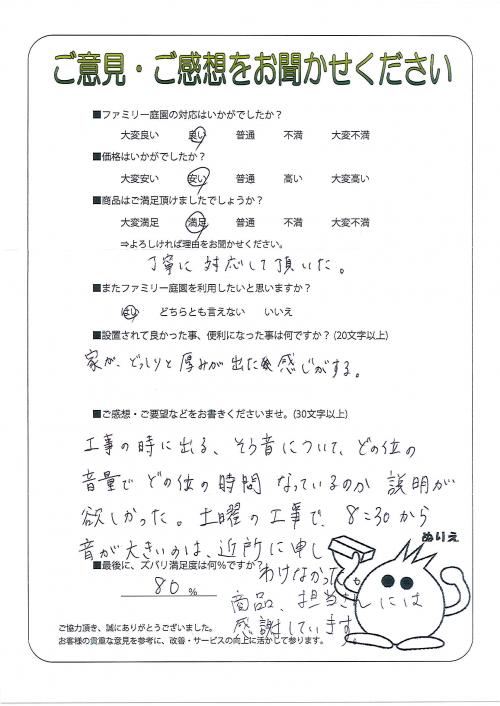 ご意見・ご感想をお聞かせください
■ファミリー庭園の対応はいかがでしたか？
大変良い 良い 普通 不満 大変不満
■価格はいかがでしたか？
大変安い 安い 普通 高い 大変高い
■商品はご満足頂けましたでしょうか？
大変満足 満足 普通 不満 大変不満
⇒よろしければ理由をお聞かせください。
丁寧に対応して頂いた。
■またファミリー庭園を利用したいと思いますか？
はい どちらとも言えない いいえ
■設置されて良かった事、便利になった事は何ですか？(20文字以上)
家が、どっしりと厚みが出た感じがする。
■ご感想・ご要望などをお書きくださいませ。(30文字以上)
工事の時に出る、そう音について、どの位の
音量でどの位の時間なっているのか説明が
欲しかった。土曜の工事で、8:30から
音が大きいのは、近所に申し
わけなかった。
■最後に、ズバリ満足度は何％ですか？
80 %
商品、担当さんには
感謝しています。
ぬりえ
ご協力頂き、誠にありがとうございました。
お客様の貴重な意見を参考に、改善・サービスの向上に活かして参ります。